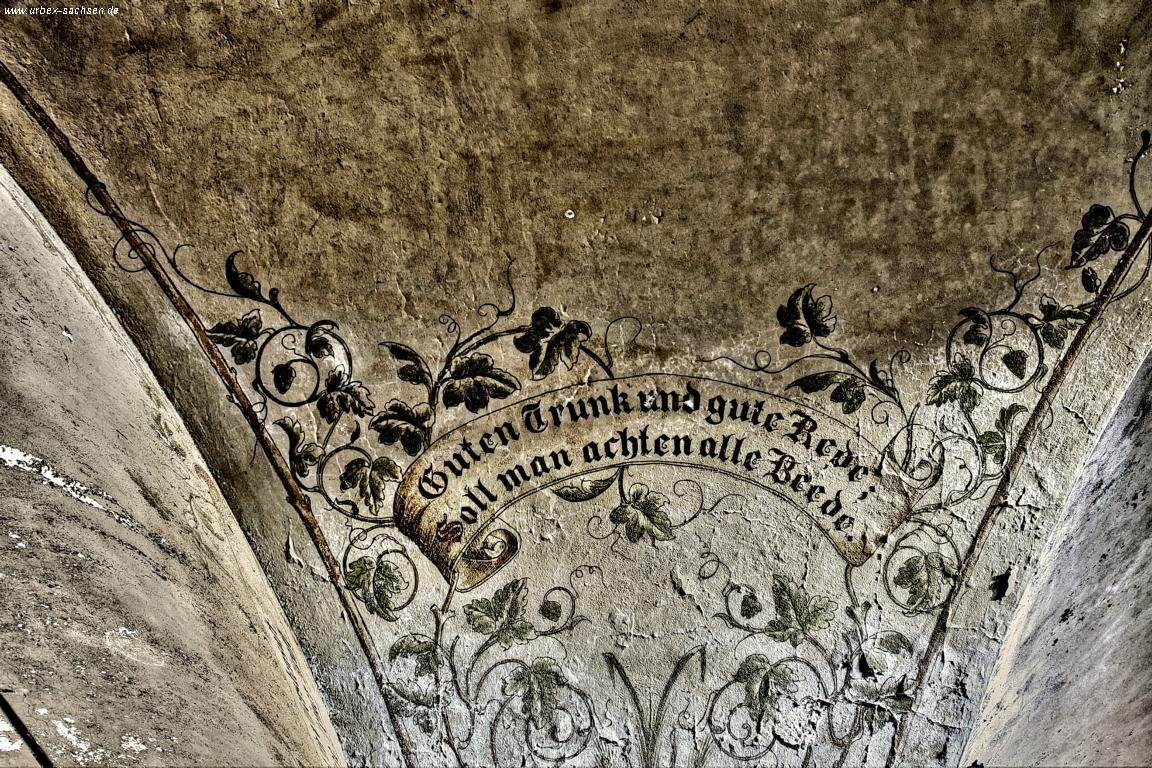 www.urbex-sachsen.de
Guten Trunk und gute Rede
Soll man achten alle Beede.